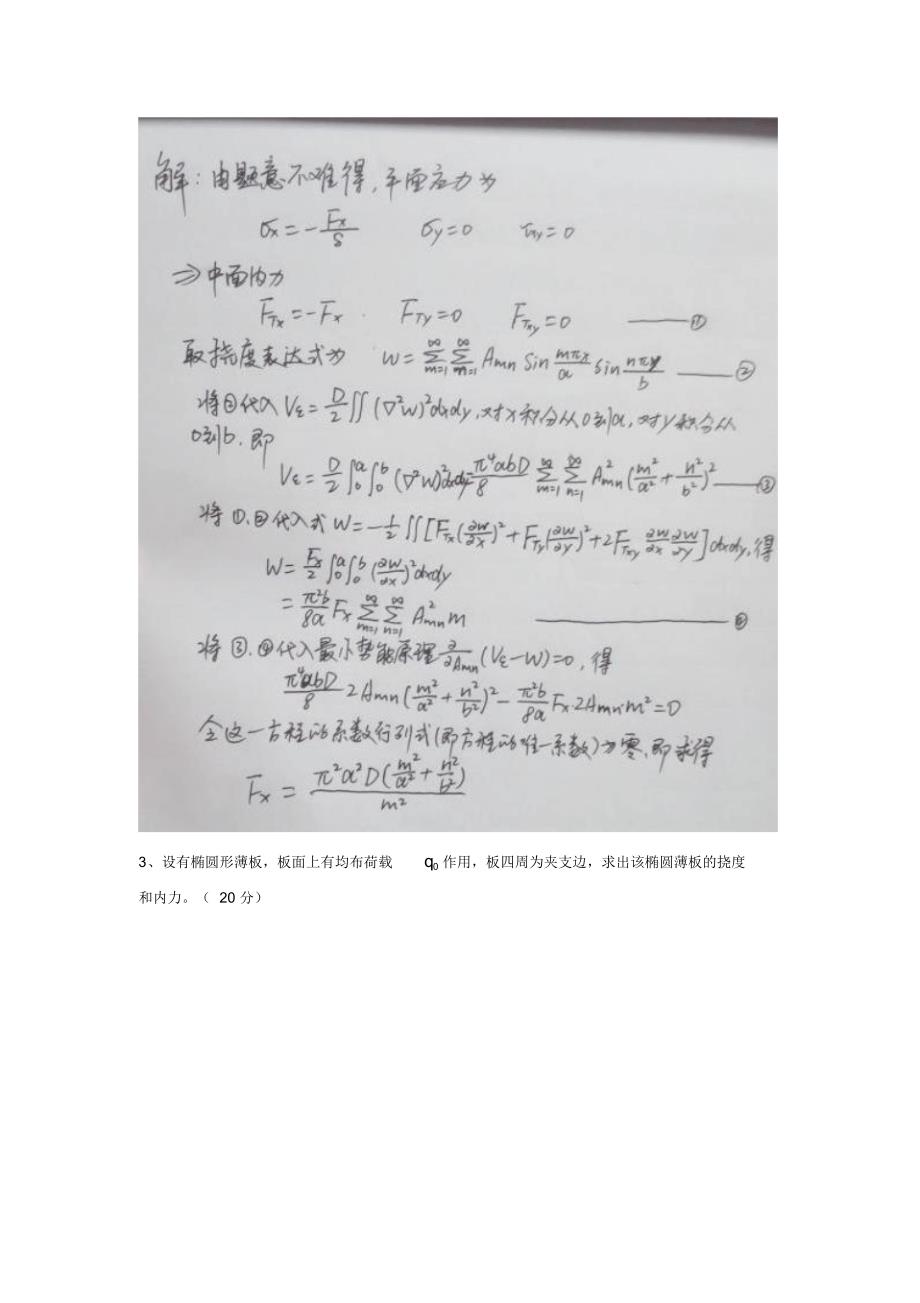 解：由题意不难得，平面应力为
σx=-Fx/δ σy=0 τxy=0
⇒中面内力
FTx=-Fx . FTy=0 FTxy=0 ——①
取挠度表达式为 W=∑∞m=1∑∞m=1 Amn Sin mπx/a sin nπy/b ——②
将②代入 Vε=D/2∬(∇²W)²dxdy，对x积分从0到a，对y积分从
0到b．即
Vε=D/2∫0a∫0b(∇²W)²dxdy=π⁴abD/8 ∑∞m=1∑∞n=1 A²mn(m²/a²+n²/b²)² ——③
将①、②代入式W=-1/2∬[FTx(∂w/∂x)²+FTy(∂w/∂y)²+2FTxy ∂w/∂x ∂w/∂y]dxdy，得
W=Fx/2∫0a∫0b(∂w/∂x)²dxdy
=π²b/8a Fx∑∞m=1∑∞n=1 A²mn m ——④
将③、④代入最小势能原理∂/∂Amn(Vε-W)=0，得
π⁴abD/8 2Amn(m²/a²+n²/b²)²-π²b/8a Fx·2Amn·m²=0
令这一方程的系数行列式(即方程的唯一系数)为零，即求得
Fx=π²a²D(m²/a²+n²/b²)/m²
3、设有椭圆形薄板，板面上有均布荷载 q0 作用，板四周为夹支边，求出该椭圆薄板的挠度
和内力。（ 20 分）